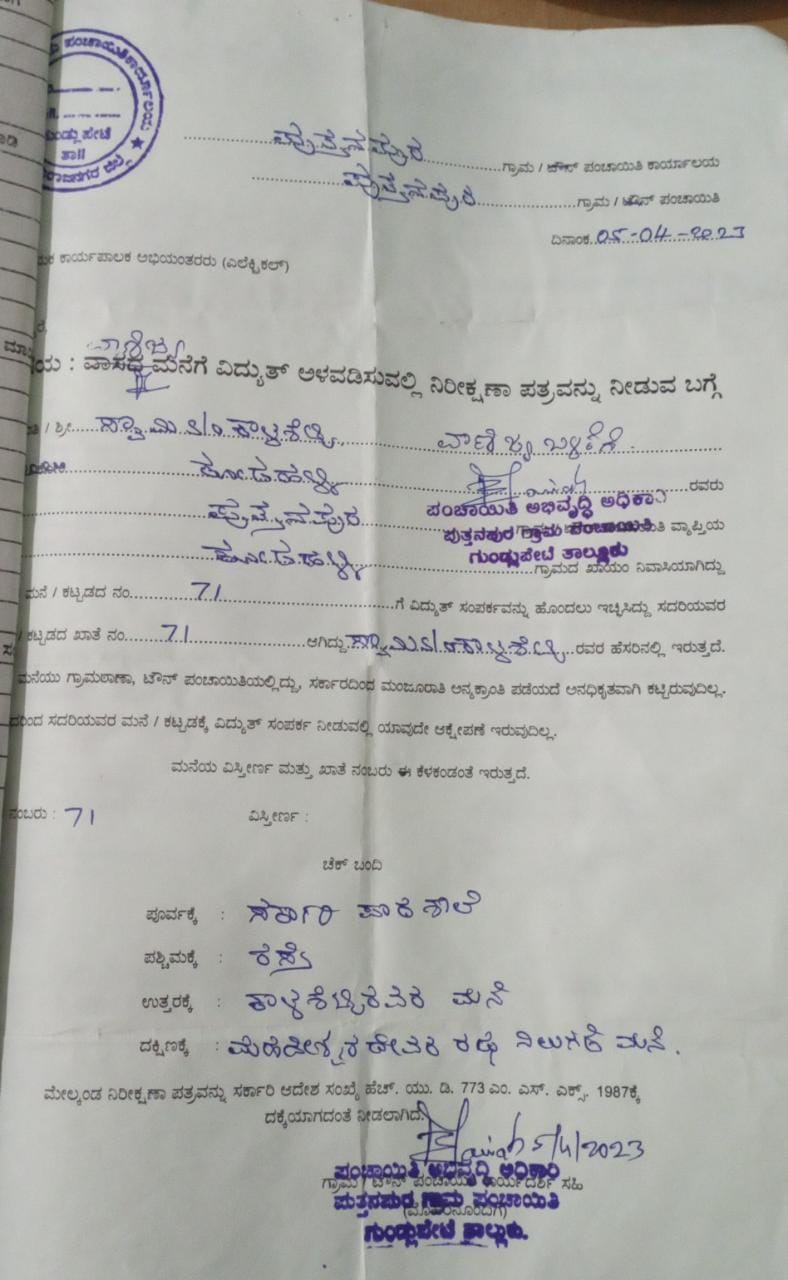 ಪಂಚಾಯಿತಿ ಕಾರ್ಯಾಲಯ ★
ಗುಂಡ್ಲುಪೇಟೆ
ತಾ||
ಪುತ್ತನಪುರ ಗ್ರಾಮ / ಟೌನ್ ಪಂಚಾಯಿತಿ ಕಾರ್ಯಾಲಯ
ಪುತ್ತನಪುರ ಗ್ರಾಮ / ಟೌನ್ ಪಂಚಾಯಿತಿ
ದಿನಾಂಕ 05-04-2023
ಕಾರ್ಯಪಾಲಕ ಅಭಿಯಂತರರು (ಎಲೆಕ್ಟ್ರಿಕಲ್)
ವಾಣಿಜ್ಯ
ಯ : ವಾಸದ ಮನೆಗೆ ವಿದ್ಯುತ್ ಅಳವಡಿಸುವಲ್ಲಿ ನಿರೀಕ್ಷಣಾ ಪತ್ರವನ್ನು ನೀಡುವ ಬಗ್ಗೆ
/ ಶ್ರೀ ಸ್ವಾಮಿ S/o ಕಾಳಶೆಟ್ಟಿ, ವಾಣಿಜ್ಯ ಬಳಕೆಗೆ.
ರವರು
ಪಂಚಾಯಿತಿ ಅಭಿವೃದ್ಧಿ ಅಧಿಕಾರಿ
ಪುತ್ತನಪುರ ವ್ಯಾಪ್ತಿಯ
ಪುತ್ತನಪುರ ಗ್ರಾಮ ಪಂಚಾಯಿತಿ
ಗುಂಡ್ಲುಪೇಟೆ ತಾಲ್ಲೂಕು
ಗ್ರಾಮದ ಖಾಯಂ ನಿವಾಸಿಯಾಗಿದ್ದು
ಮನೆ / ಕಟ್ಟಡದ ನಂ. 71 ಗೆ ವಿದ್ಯುತ್ ಸಂಪರ್ಕವನ್ನು ಹೊಂದಲು ಇಚ್ಛಿಸಿದ್ದು ಸದರಿಯವರ
/ ಕಟ್ಟಡದ ಖಾತೆ ನಂ. 71 ಆಗಿದ್ದು ಸ್ವಾಮಿ S/o ಕಾಳಶೆಟ್ಟಿ ರವರ ಹೆಸರಿನಲ್ಲಿ ಇರುತ್ತದೆ.
ಮನೆಯು ಗ್ರಾಮಠಾಣಾ, ಟೌನ್ ಪಂಚಾಯಿತಿಯಲ್ಲಿದ್ದು, ಸರ್ಕಾರದಿಂದ ಮಂಜೂರಾತಿ ಅನ್ಯಕ್ರಾಂತಿ ಪಡೆಯದೆ ಅನಧಿಕೃತವಾಗಿ ಕಟ್ಟಿರುವುದಿಲ್ಲ.
ದರಿಂದ ಸದರಿಯವರ ಮನೆ / ಕಟ್ಟಡಕ್ಕೆ ವಿದ್ಯುತ್ ಸಂಪರ್ಕ ನೀಡುವಲ್ಲಿ ಯಾವುದೇ ಆಕ್ಷೇಪಣೆ ಇರುವುದಿಲ್ಲ.
ಮನೆಯ ವಿಸ್ತೀರ್ಣ ಮತ್ತು ಖಾತೆ ನಂಬರು ಈ ಕೆಳಕಂಡಂತೆ ಇರುತ್ತದೆ.
ನಂಬರು : 71 ವಿಸ್ತೀರ್ಣ :
ಚೆಕ್ ಬಂದಿ
ಪೂರ್ವಕ್ಕೆ : ಸರ್ಕಾರಿ ಪಾಠಶಾಲೆ
ಪಶ್ಚಿಮಕ್ಕೆ : ರಸ್ತೆ
ಉತ್ತರಕ್ಕೆ : ಕಾಳಶೆಟ್ಟಿರವರ ಮನೆ
ದಕ್ಷಿಣಕ್ಕೆ : ಮಹದೇಶ್ವರ ದೇವರ ರಥ ನಿಲುಗಡೆ ಮನೆ.
ಮೇಲ್ಕಂಡ ನಿರೀಕ್ಷಣಾ ಪತ್ರವನ್ನು ಸರ್ಕಾರಿ ಆದೇಶ ಸಂಖ್ಯೆ ಹೆಚ್. ಯು. ಡಿ. 773 ಎಂ. ಎಸ್. ಎಕ್ಸ್. 1987ಕ್ಕೆ
ದಕ್ಕೆಯಾಗದಂತೆ ನೀಡಲಾಗಿದೆ.
5/4/2023
ಪಂಚಾಯಿತಿ ಅಭಿವೃದ್ಧಿ ಅಧಿಕಾರಿ
ಗ್ರಾಮ / ಟೌನ್ ಪಂಚಾಯಿತಿ ಕಾರ್ಯದರ್ಶಿ ಸಹಿ
ಪುತ್ತನಪುರ ಗ್ರಾಮ ಪಂಚಾಯಿತಿ
(ಮೊಹರಿನೊಂದಿಗೆ)
ಗುಂಡ್ಲುಪೇಟೆ ತಾಲ್ಲೂಕು.